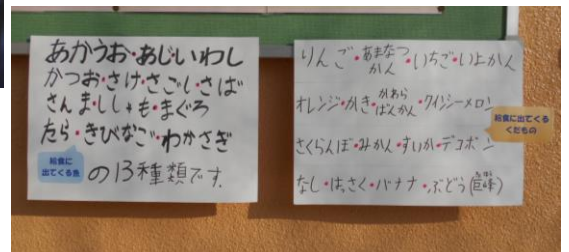 あかうお・あじ・いわし
かつお・さけ・さごし・さば
さんま・ししゃも・まぐろ
たら・きびなご・わかさぎ
給食に
出てくる魚
の13種類です。
りんご・あまなつかん・いちご・いよかん
オレンジ・かき・かわちばんかん・クインシーメロン
給食に出てくる
くだもの
さくらんぼ・みかん・すいか・デコポン
なし・はっさく・バナナ・ぶどう(巨峰)